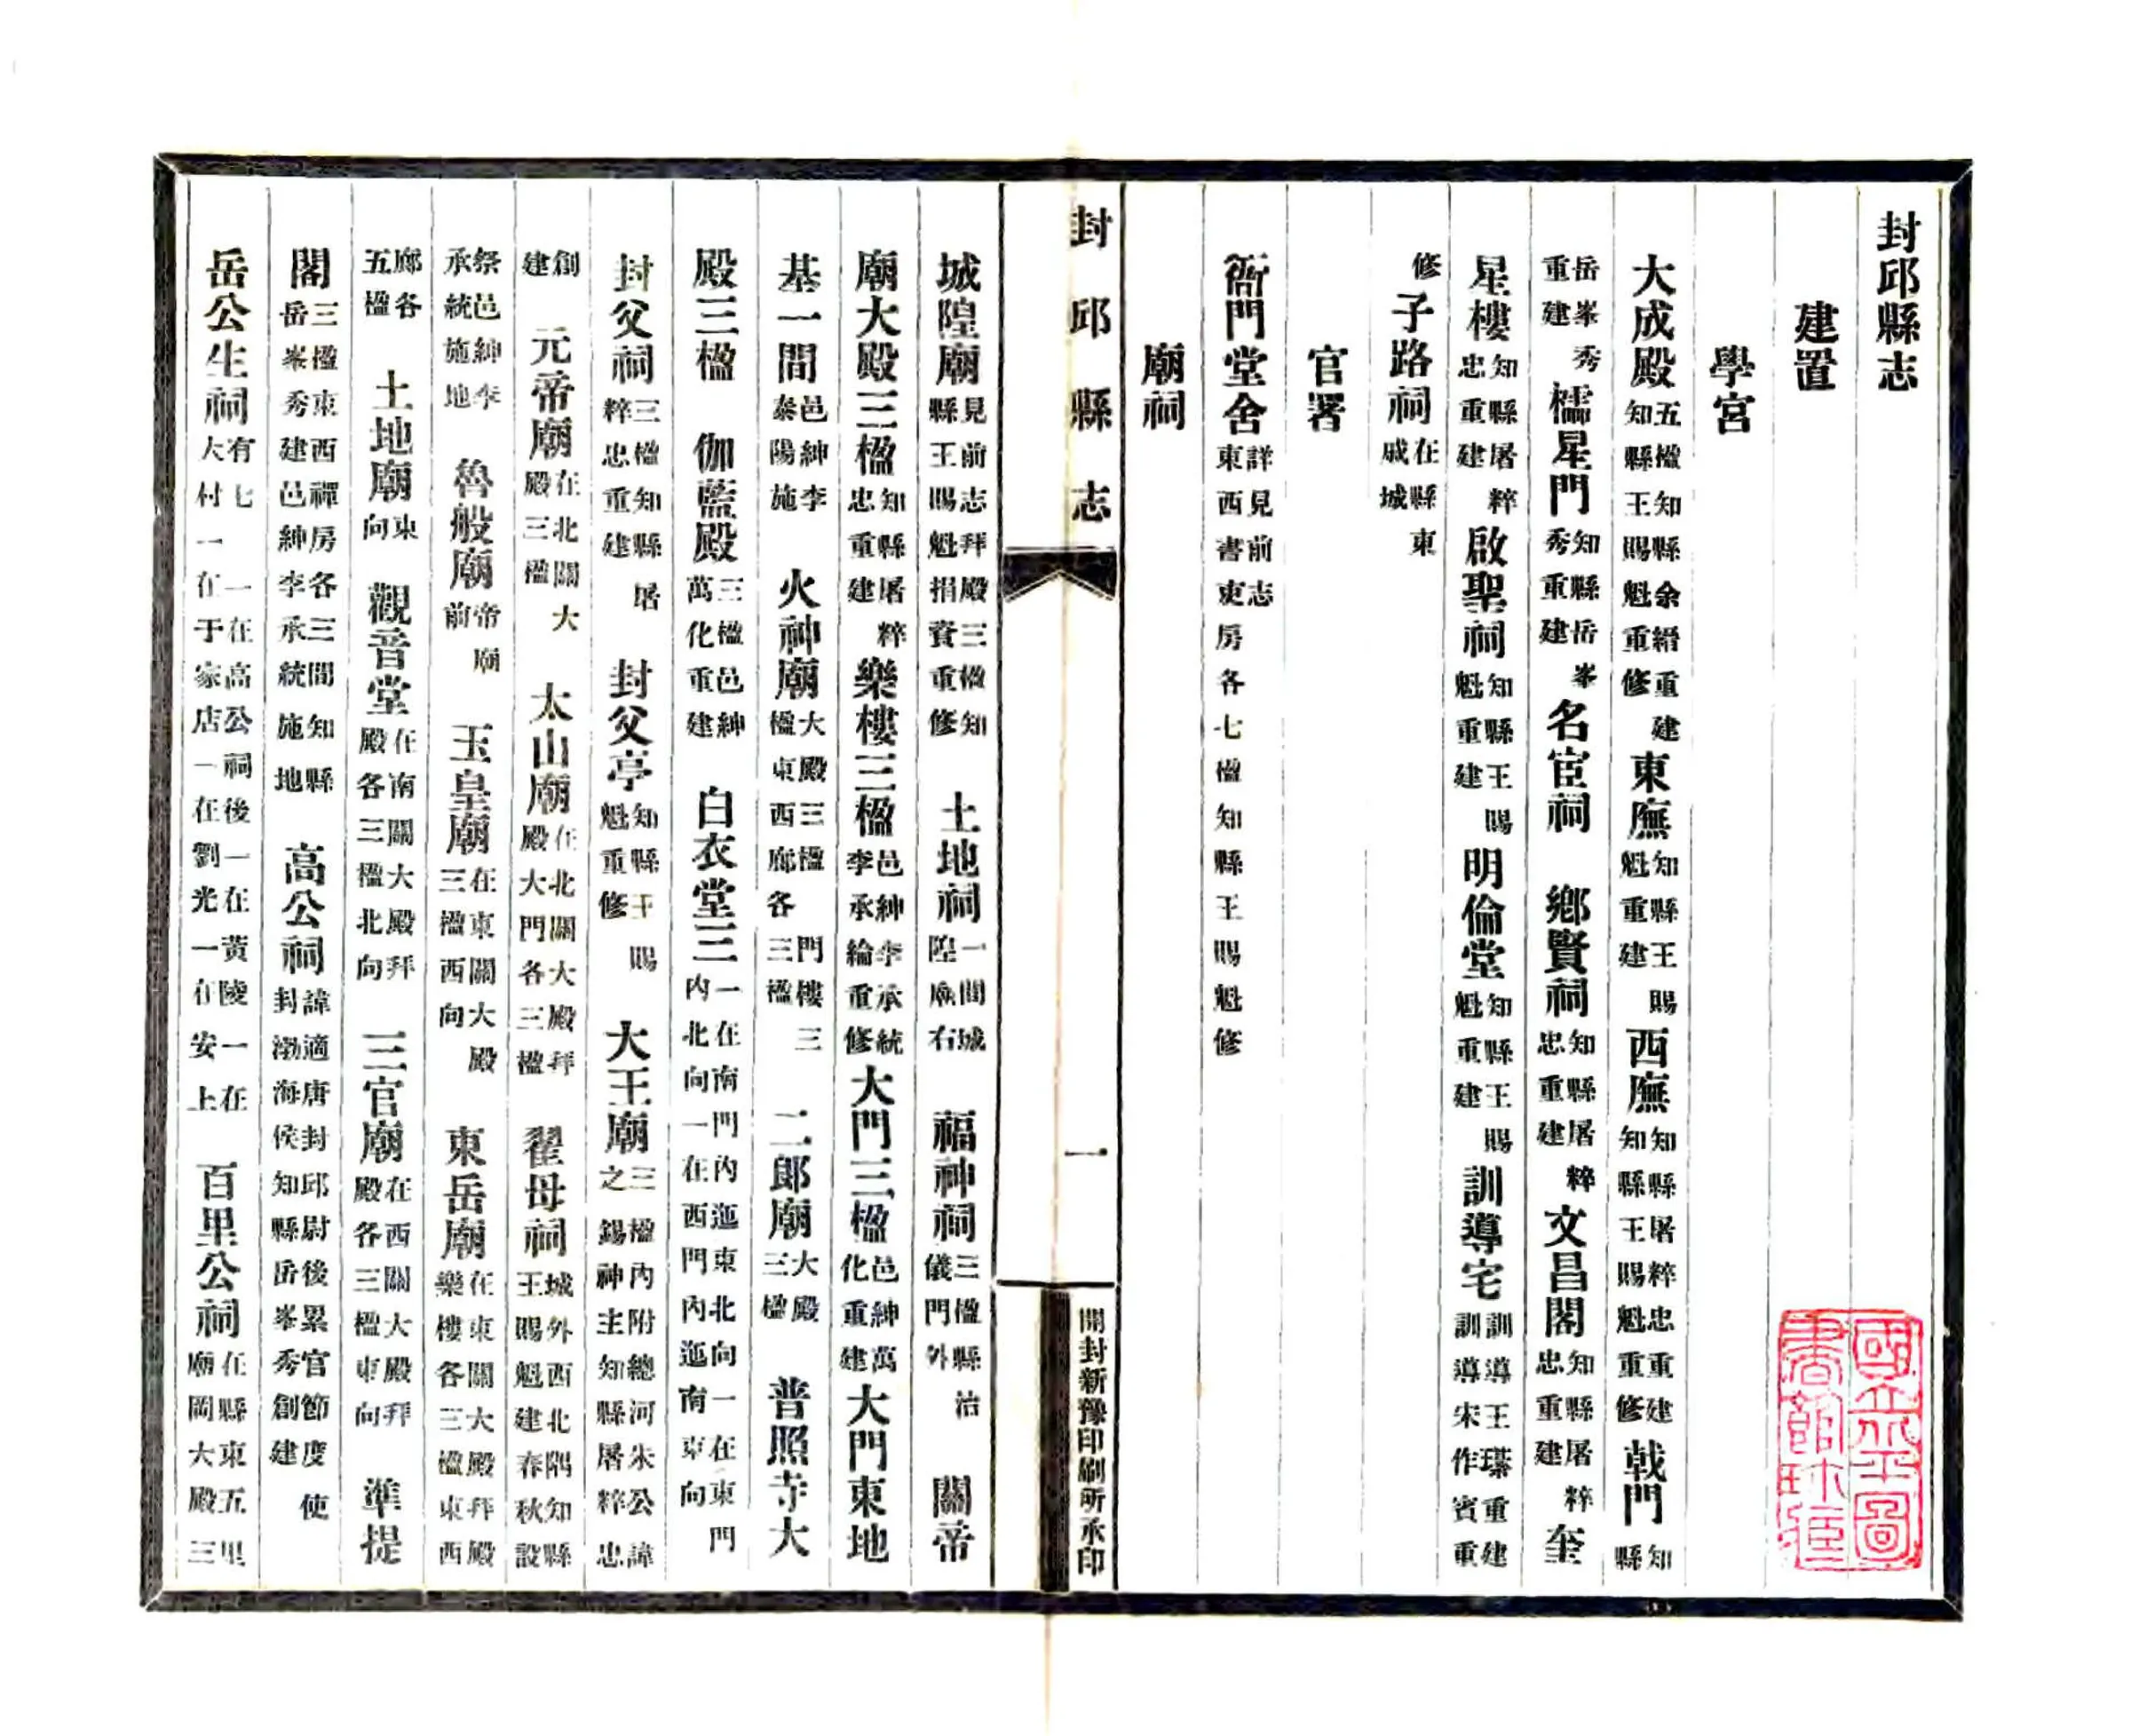 封邱縣志
建置
學宮
大成殿五楹知縣余縉重建知縣王賜魁重修東廡知縣王賜魁重建西廡知縣屠粹忠重建知縣王賜魁重修戟門知縣
岳峯秀重建櫺星門知縣岳峯秀重建名宦祠 鄉賢祠知縣屠粹忠重建文昌閣知縣屠粹忠重建奎
星樓知縣屠粹忠重建啟聖祠知縣王賜魁重建明倫堂知縣王賜魁重建訓導宅訓導王瑹重建訓導宋作賓重
修子路祠在縣東戚城
官署
衙門堂舍詳見前志東西書吏房各七楹知縣王賜魁修
廟祠
封邱縣志
一
開封新豫印刷所承印
城隍廟見前志拜殿三楹知縣王賜魁捐資重修 土地祠一間城隍廟右 福神祠三楹縣治儀門外 關帝
廟大殿三楹知縣屠粹忠重建樂樓三楹邑紳李承統李承綸重修大門三楹邑紳萬化重建大門東地
基一間邑紳李泰陽施 火神廟大殿三楹門樓三楹東西廊各三楹 二郎廟大殿三楹 普照寺大
殿三楹 伽藍殿三楹邑紳萬化重建 白衣堂三一在南門內迤東北向一在東門內北向一在西門內迤南東向
封父祠三楹知縣屠粹忠重建 封父亭知縣王賜魁重修 大王廟三楹內附總河朱公諱之錫神主知縣屠粹忠
創建 元帝廟在北關大殿三楹 太山廟在北關大殿拜殿大門各三楹 翟母祠城外西北隅知縣王賜魁建春秋設
祭邑紳李承統施地 魯般廟帝廟前 玉皇廟在東關大殿三楹西向 東岳廟在東關大殿拜殿樂樓各三楹東西
廊各五楹 土地廟東向 觀音堂在南關大殿拜殿各三楹北向 三官廟在西關大殿拜殿各三楹東向 準提
閣三楹東西禪房各三間知縣岳峯秀建邑紳李承統施地 高公祠諱適唐封邱尉後累官節度使封渤海侯知縣岳峯秀創建
岳公生祠有七一在高公祠後一在黃陵一在大村一在于家店一在劉光一在安上 百里公祠在縣東五里廟岡大殿三
國立北平圖書館珍藏